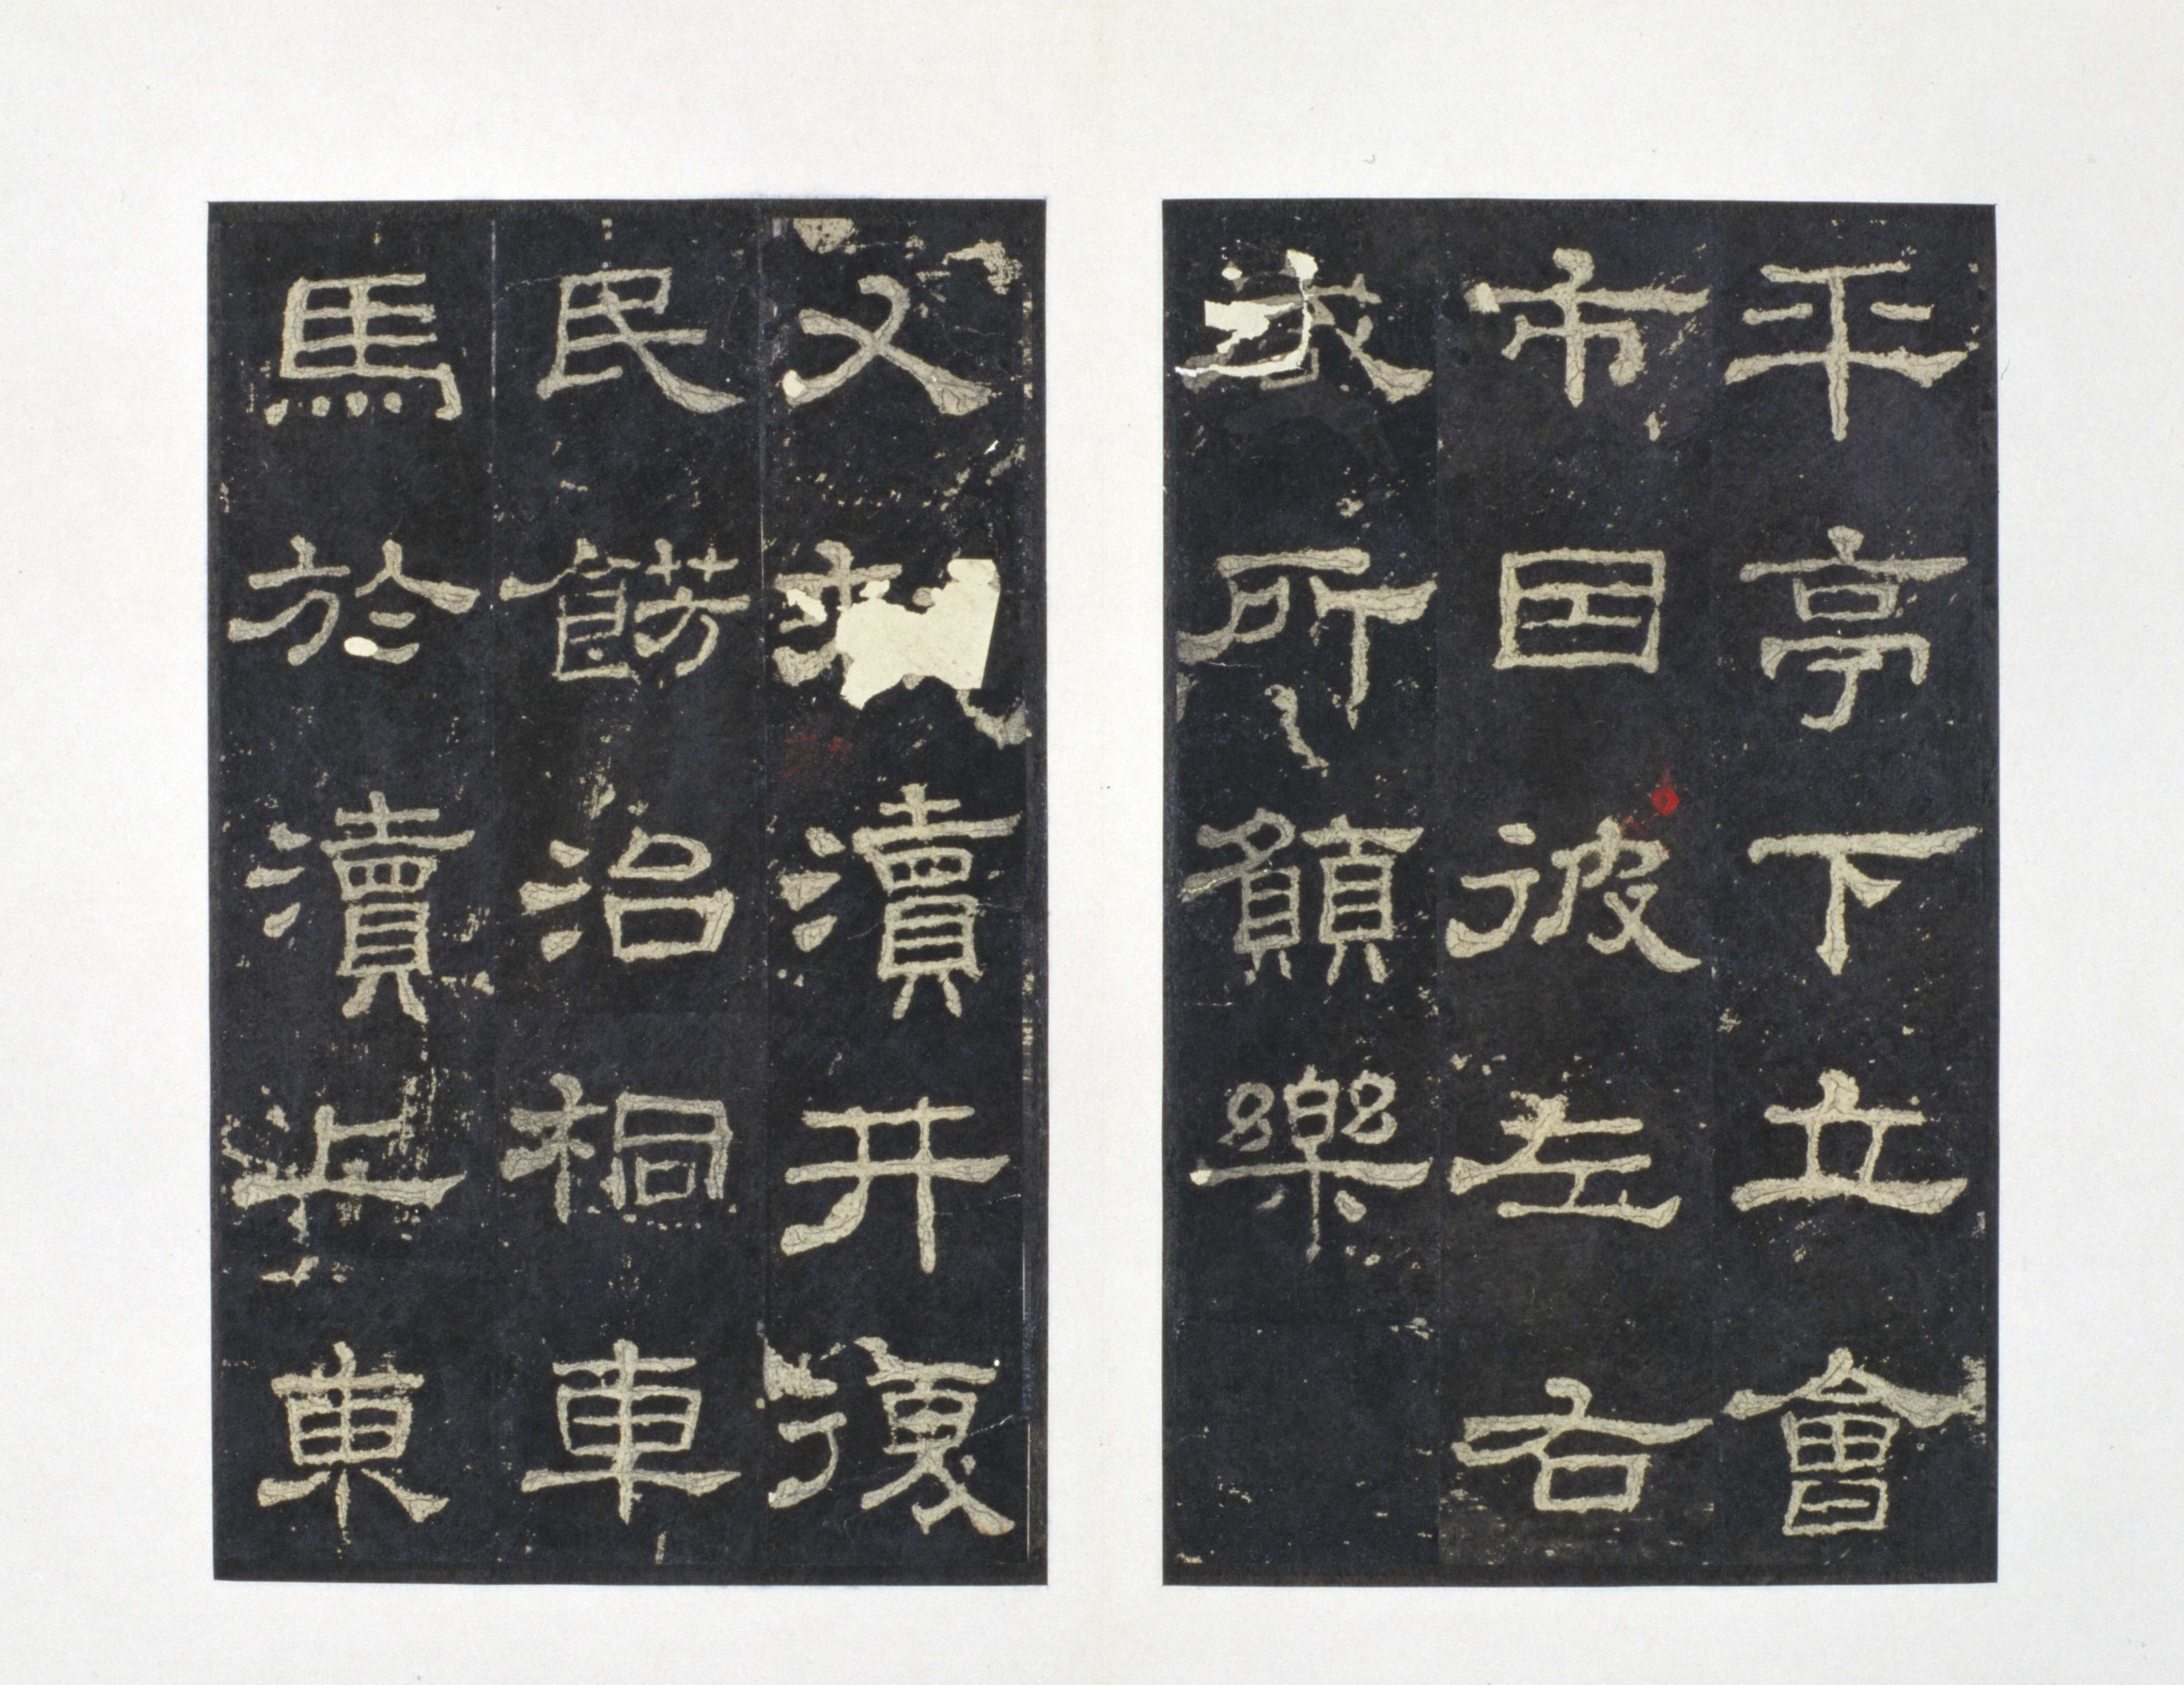 平亭下立會
市因彼左右
咸所願樂
又敕瀆井復
民餝治桐車
馬於瀆上東